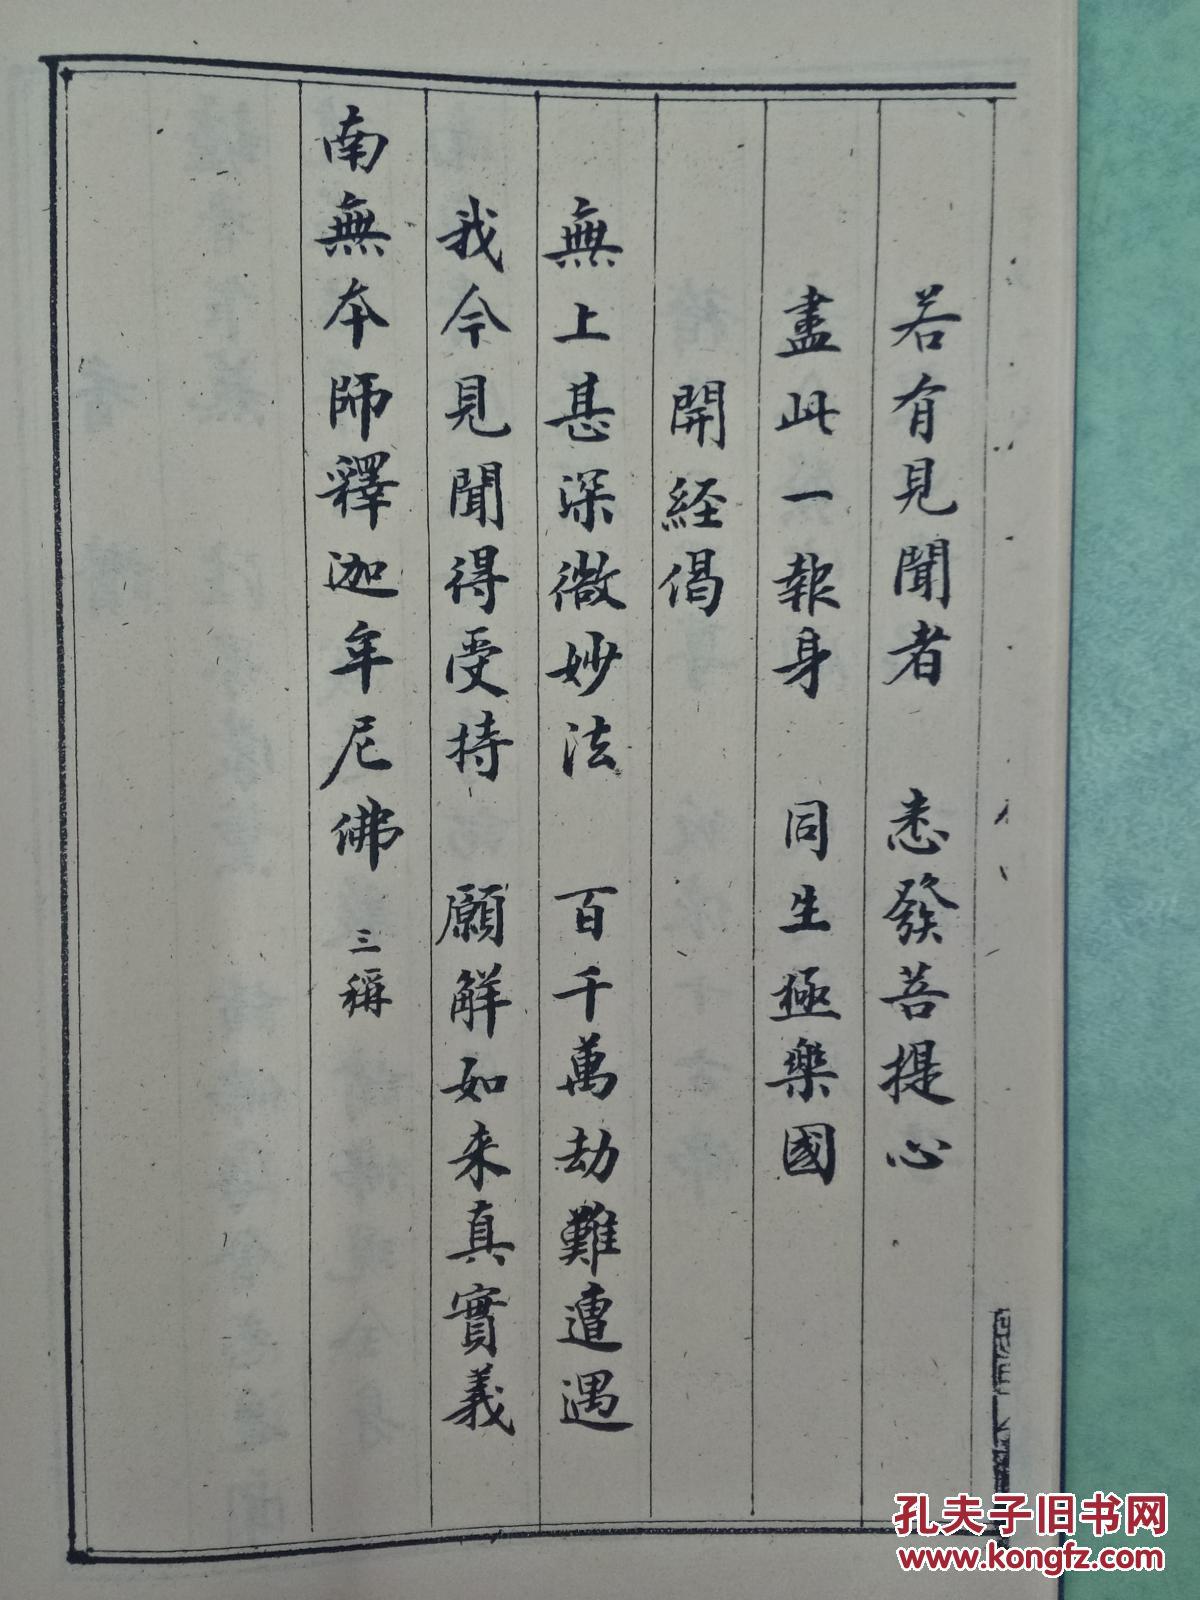 若有見聞者　悉發菩提心
盡此一報身　同生極樂國
開経偈
無上甚深微妙法　百千萬劫難遭遇
我今見聞得受持　願解如来真實義
南無本師釋迦牟尼佛 三稱
孔夫子旧书网
www.kongfz.com